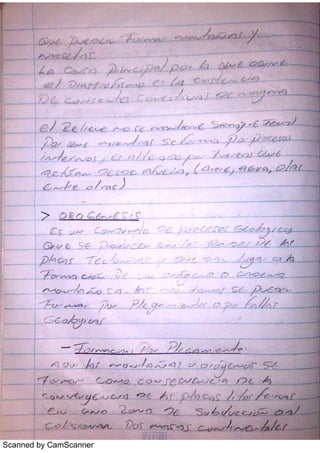 Que pueden Formar montañas y
mesetas.
La causa principal por la que ocurre
el Diastrofismo es la existencia
De corrientes Convectivas De magma
El Relieve no se mantiene siempre igual
Por que mientras se forma Por procesos
internos, es alterado por Fuerzas que
actúan Desde afuera, (aire, agua, olas
Entre otras)
> OROGÉNESIS
Es un conjunto De procesos Geológicos
Que se producen en los bordes De las
placas Tectónicas y que dan lugar a la
Formación De un orógeno o cadena
montañosa. Las montañas se pueden
Formar por Plegamientos o por Fallas
Geológicas
- Formación Por Plegamiento:
Aquí las montañas u orógenos se
Forman como consecuencia De la
convergencia De las placas litosféricas
en una zona De Subducción o al
colisionar Dos masas continentales
Scanned by CamScanner